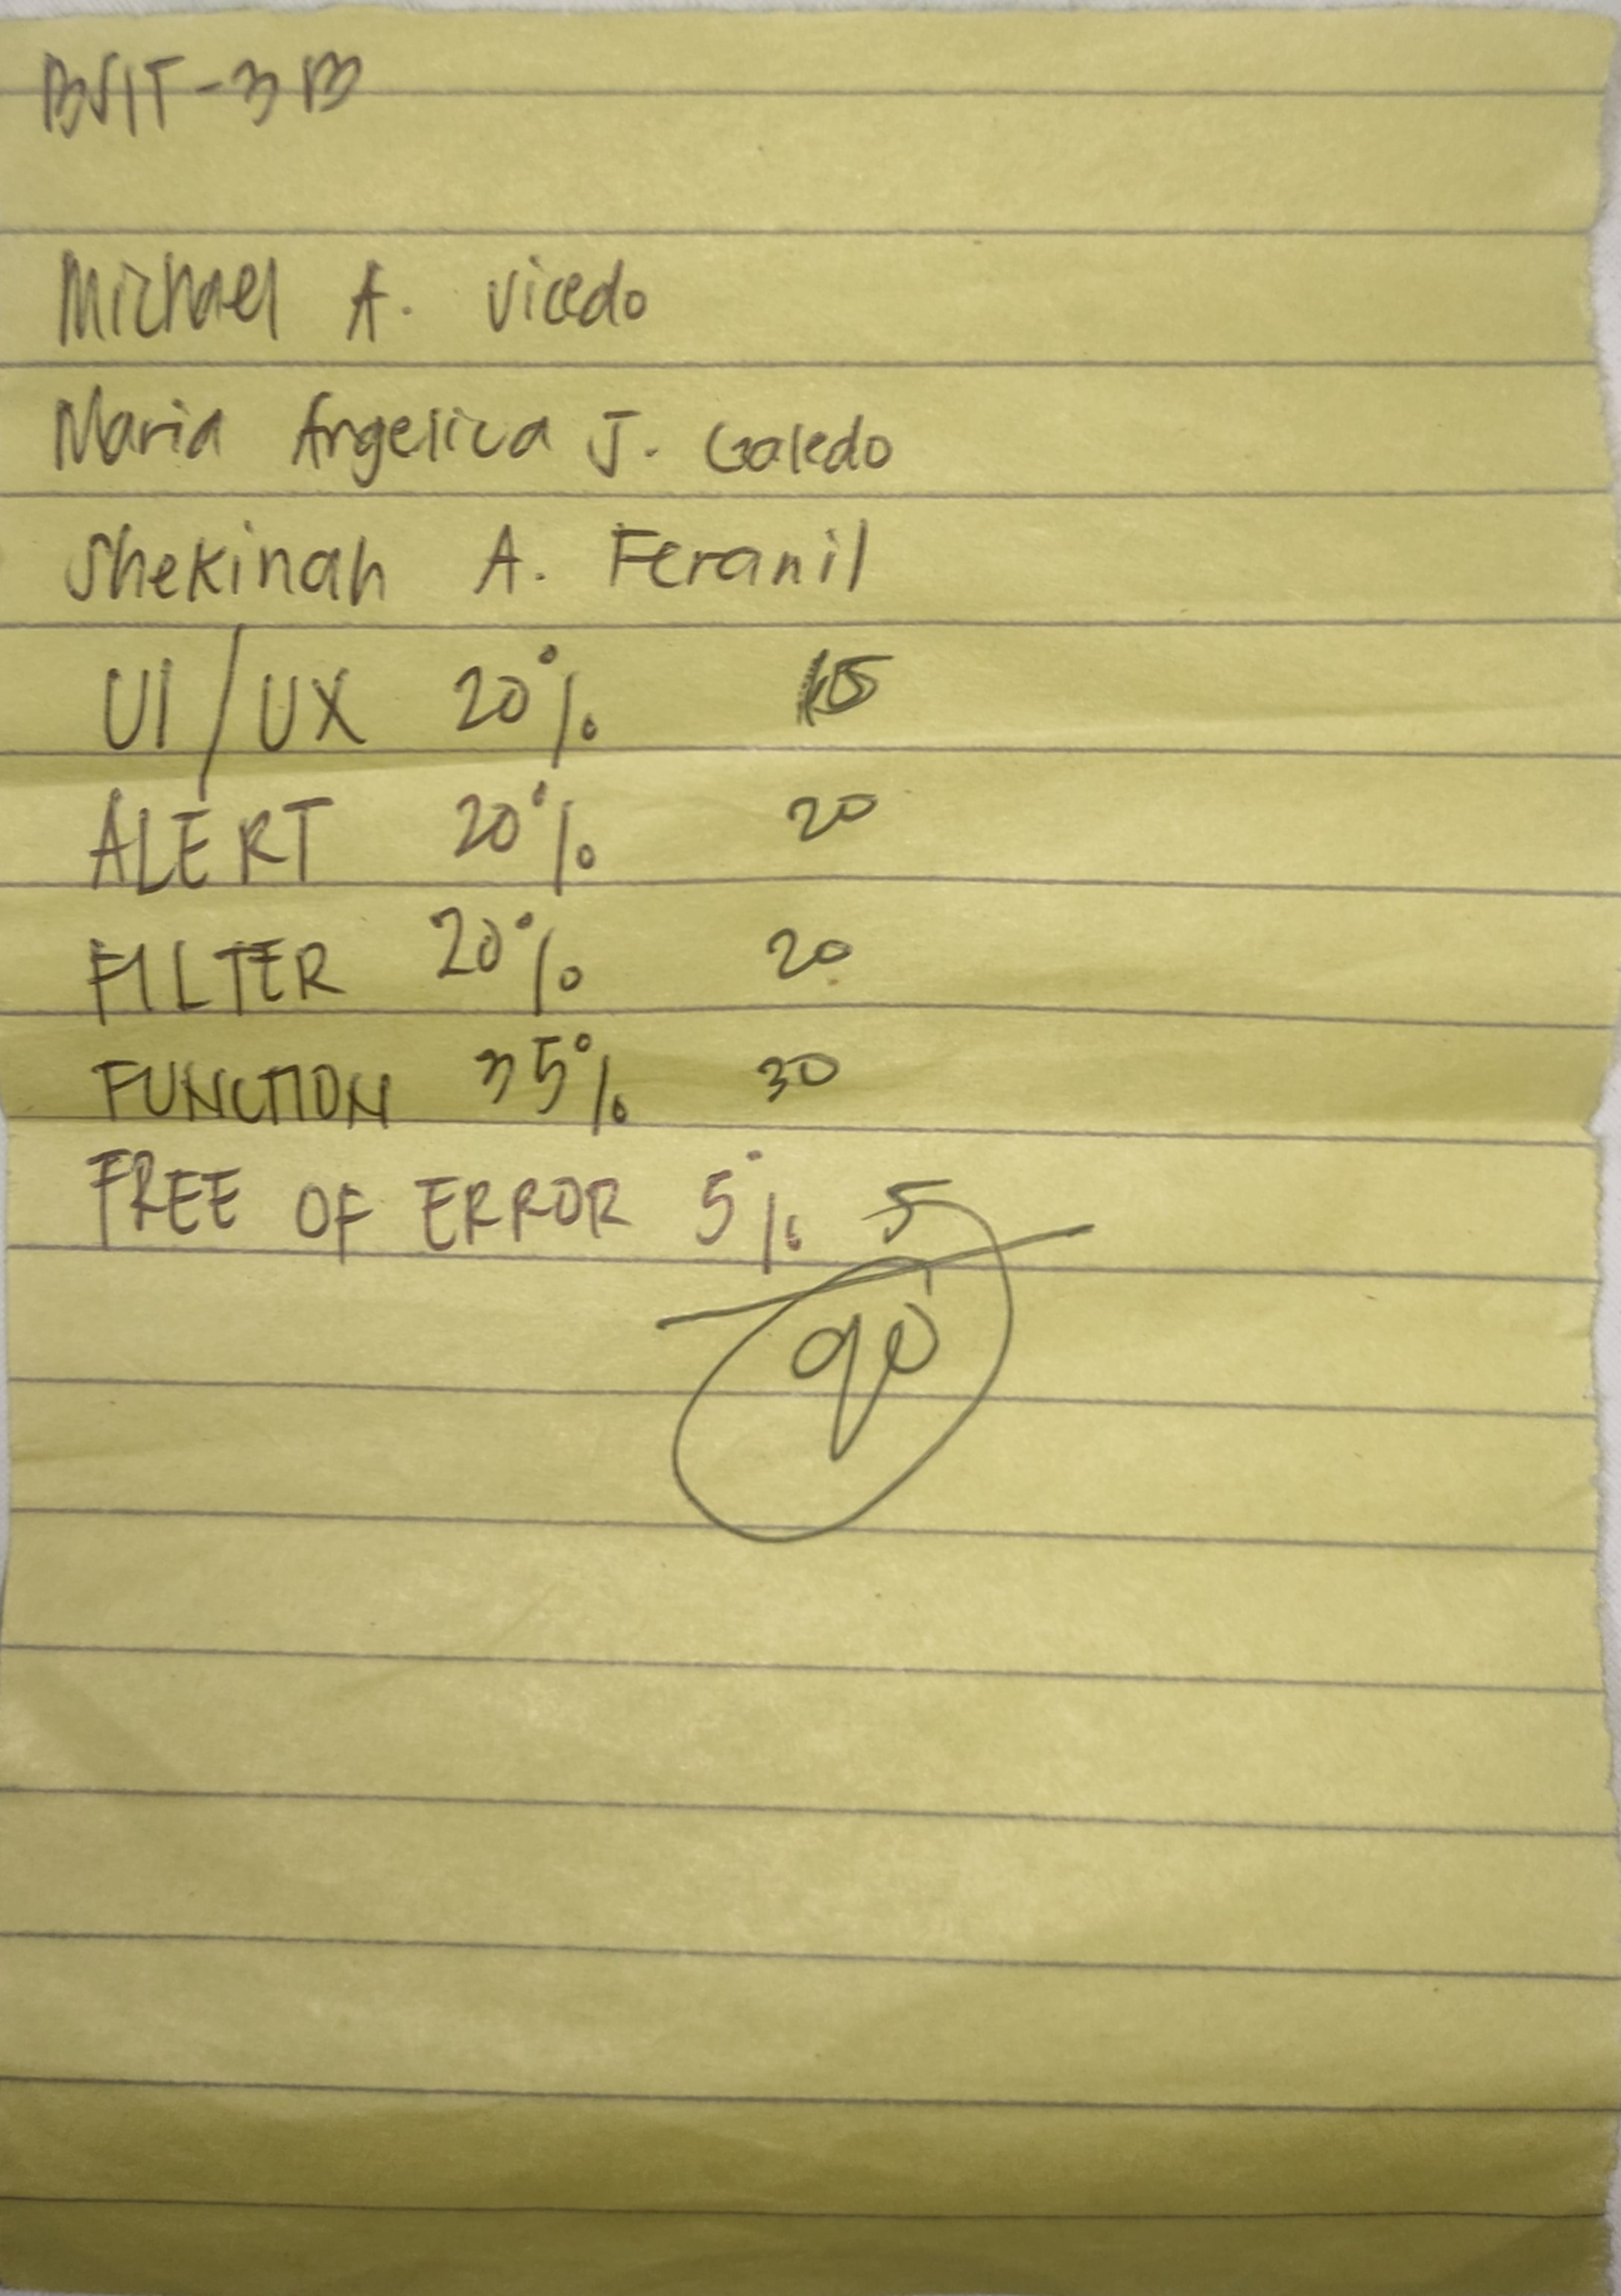 BSIT-3B
Michael A. Vicedo
Maria Angelica J. Galedo
Shekinah A. Feranil
UI/UX 20% 15
ALERT 20% 20
FILTER 20% 20
FUNCTION 35% 30
FREE OF ERROR 5% 5
90